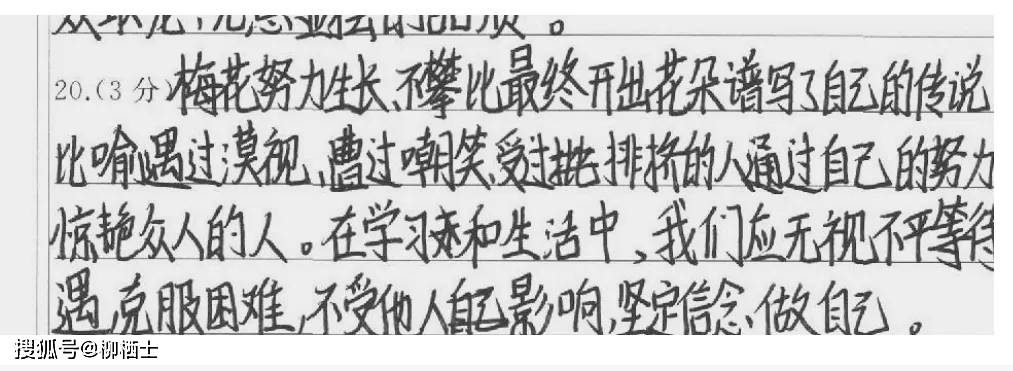 20.(3分)梅花努力生长、不攀比最终开出花朵谱写了自己的传说
比喻遇过漠视、曹过嘲笑、受过排挤的人通过自己的努力
惊艳众人的人。在学习和生活中、我们应无视不平等待
遇、克服困难、不受他人影响、坚定信念、做自己。
搜狐号@柳栖士